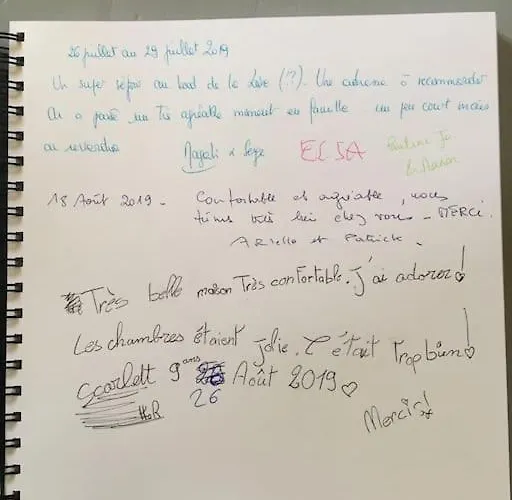 26 juillet au 29 juillet 2019
Un super séjour au bord de la (??). Une adresse à recommander
On a passé un très agréable moment en famille un peu court mais
on reviendra Magali & Serge ELSA Pauline
18 Août 2019 - Confortable et agréable, nous
très bien chez vous - MERCI.
et Patrick.
Très belle maison Très confortable. J'ai adorer!
Les chambres étaient jolie. C'était trop bien!
Scarlett 9 ans 26 Août 2019 ♡
Mercis!